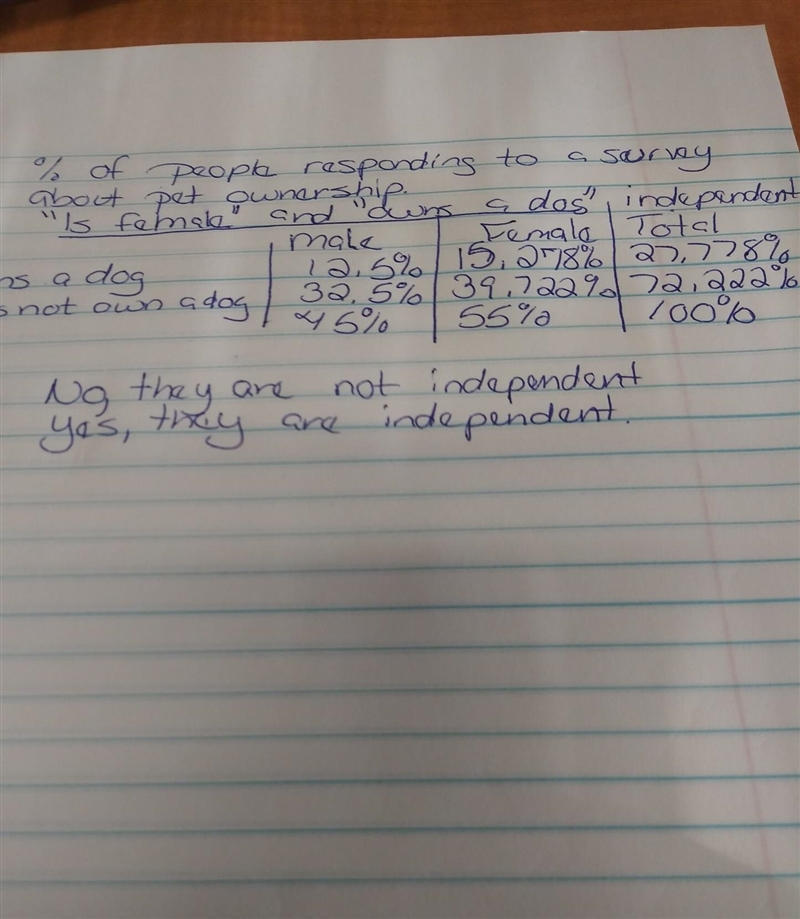 % of people responding to a survey
about pet ownership.
"Is female" and "owns a dog", independent
Male Female Total
ns a dog 12.5% 15.278% 27.778%
s not own a dog 32.5% 39.722% 72.222%
45% 55% 100%
No they are not independent
Yes, they are independent.